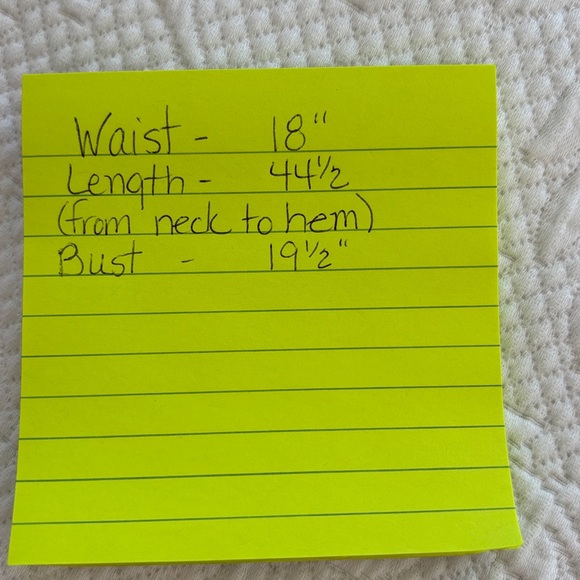 Waist - 18"
Length - 44 1/2
(from neck to hem)
Bust - 19 1/2"